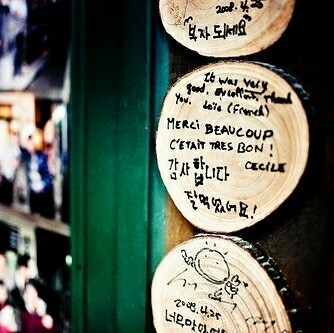 2008. 4.
"부자 되세요"
It was very
good, excellent, thank
you. Loïc (French)
MERCI BEAUCOUP
C'ETAIT TRES BON !
CECILE
감사합니다
잘 먹었어요!
2008. 4. 25
너무 맛있